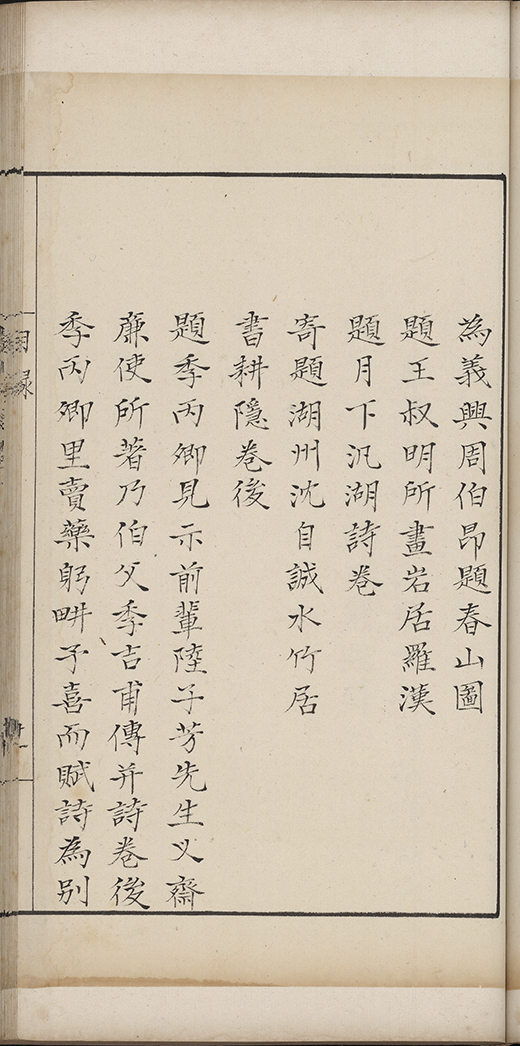 為義興周伯昂題春山圖
題王叔明所畫岩居羅漢
題月下汎湖詩卷
寄題湖州沈自誠水竹居
書耕隱卷後
題季丙卿見示前輩陸子芳先生义齋
亷使所著乃伯父季吉甫傳并詩卷後
季丙卿里賣藥躬畊予喜而賦詩為别
目録